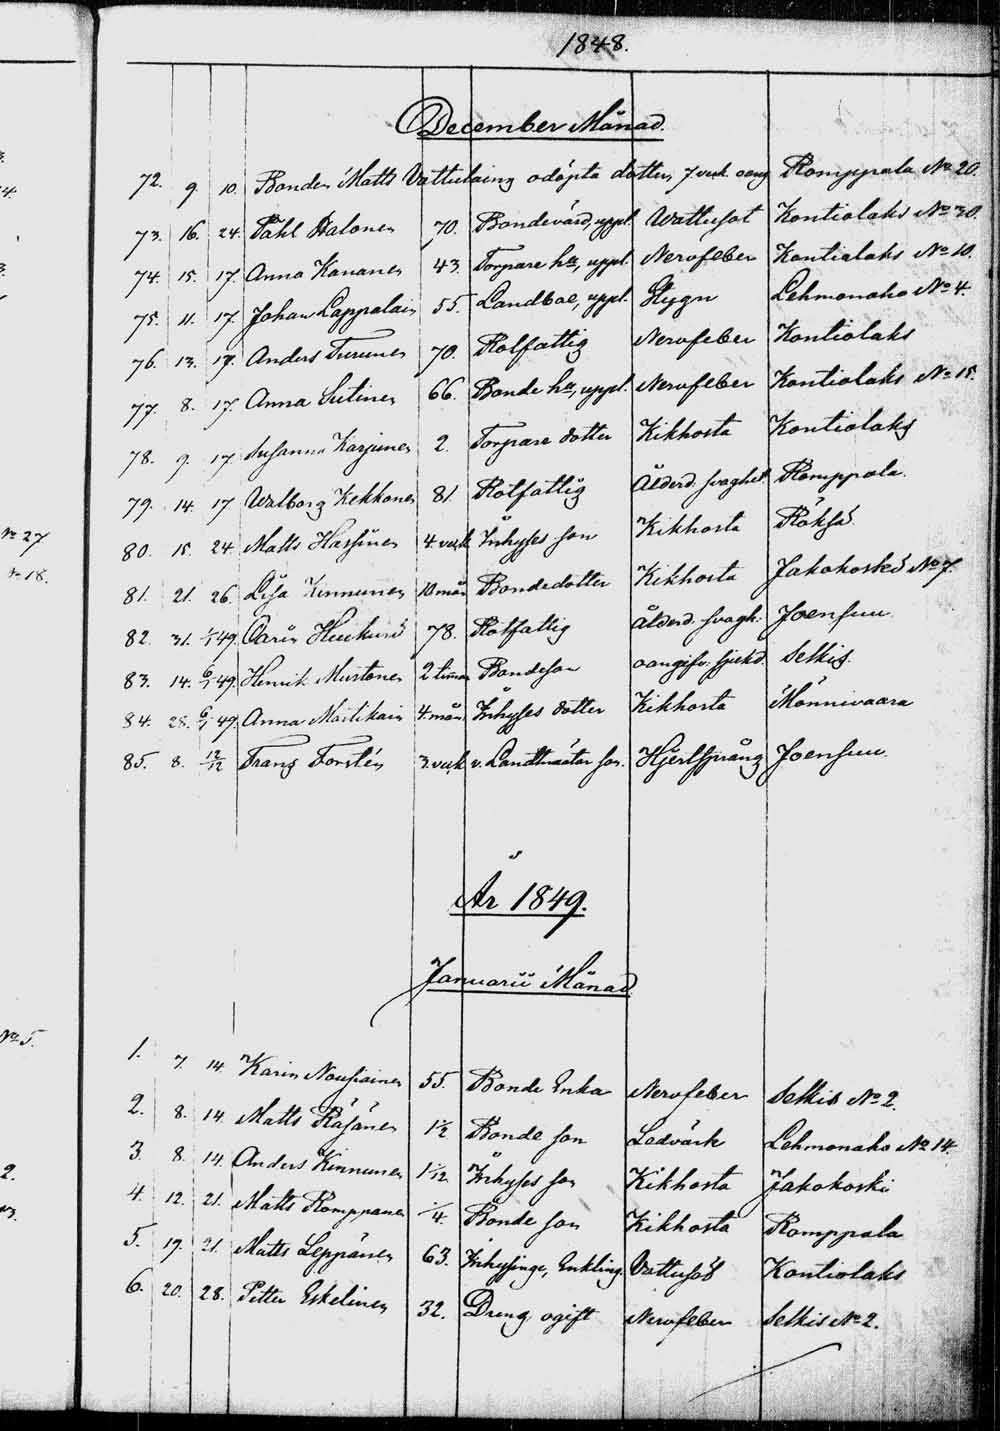 1848.
December Månad.
72. 9. 10. Bonden Matts Vattulaing odöpta dotter, 7 veck. oang Romppala No 20.
73. 16. 24. Påhl Halonen 70. Bondevärd, uppl. Wattusot Kontiolaks No 30.
74. 15. 17. Anna Kananen 43. Torpare ha, uppl. Nervfeber Kontiolaks No 10.
75. 11. 17. Johan Lappalain 55. Landboe, uppl. Stygn Lehmonaho No 4.
76. 13. 17. Anders Turunen 70. Rotfattig Nervfeber Kontiolaks
77. 8. 17. Anna Sutinen 66. Bonde ha, uppl. Nervfeber Kontiolaks No 15.
78. 9. 17. Susanna Karjunen 2. Torpare dotter Kikhosta Kontiolaks
79. 14. 17. Walborg Kekkonen 81. Rotfattig Ålderd. svaghet Romppala.
80. 15. 24. Matts Hassinen 4. veck Inhyses son Kikhosta
81. 21. 26. Lisa Kinnunen 10 mån Bondedotter Kikhosta Jakokoski No 7.
82. 31. 1/1 49. 78. Rotfattig ålderd. svagh. Joensuu.
83. 14. 6/1 49. Henrik Mustonen 2 timmar Bondeson oangifv. sjukd. Selkis.
84. 28. 6/1 49. Anna Martikain 4. mån Inhyses dotter Kikhosta Mönnivaara
85. 8. 12/12 Frans Forstén 3. veck v. Landtmätar son. Hjertsprång Joensuu.
År 1849.
Januarii Månad
1. 7. 14. Karin Nousiainen 55. Bonde Enka Nervfeber Selkis No 2.
2. 8. 14. Matts Räsänen 1 1/2 Bonde son Ledvärk Lehmonaho No 14.
3. 8. 14. Anders Kinnunen 1/12. Inhyses son Kikhosta Jakokoski
4. 12. 21. Matts Romppanen 1/4. Bonde son Kikhosta Romppala
5. 19. 21. Matts Leppänen 63. Inhysinge, Enkling. Vattusot Kontiolaks
6. 20. 28. Petter Eskelinen 32. Dreng ogift Nervfeber Selkis No 2.
No 27
No 18.
No 5.